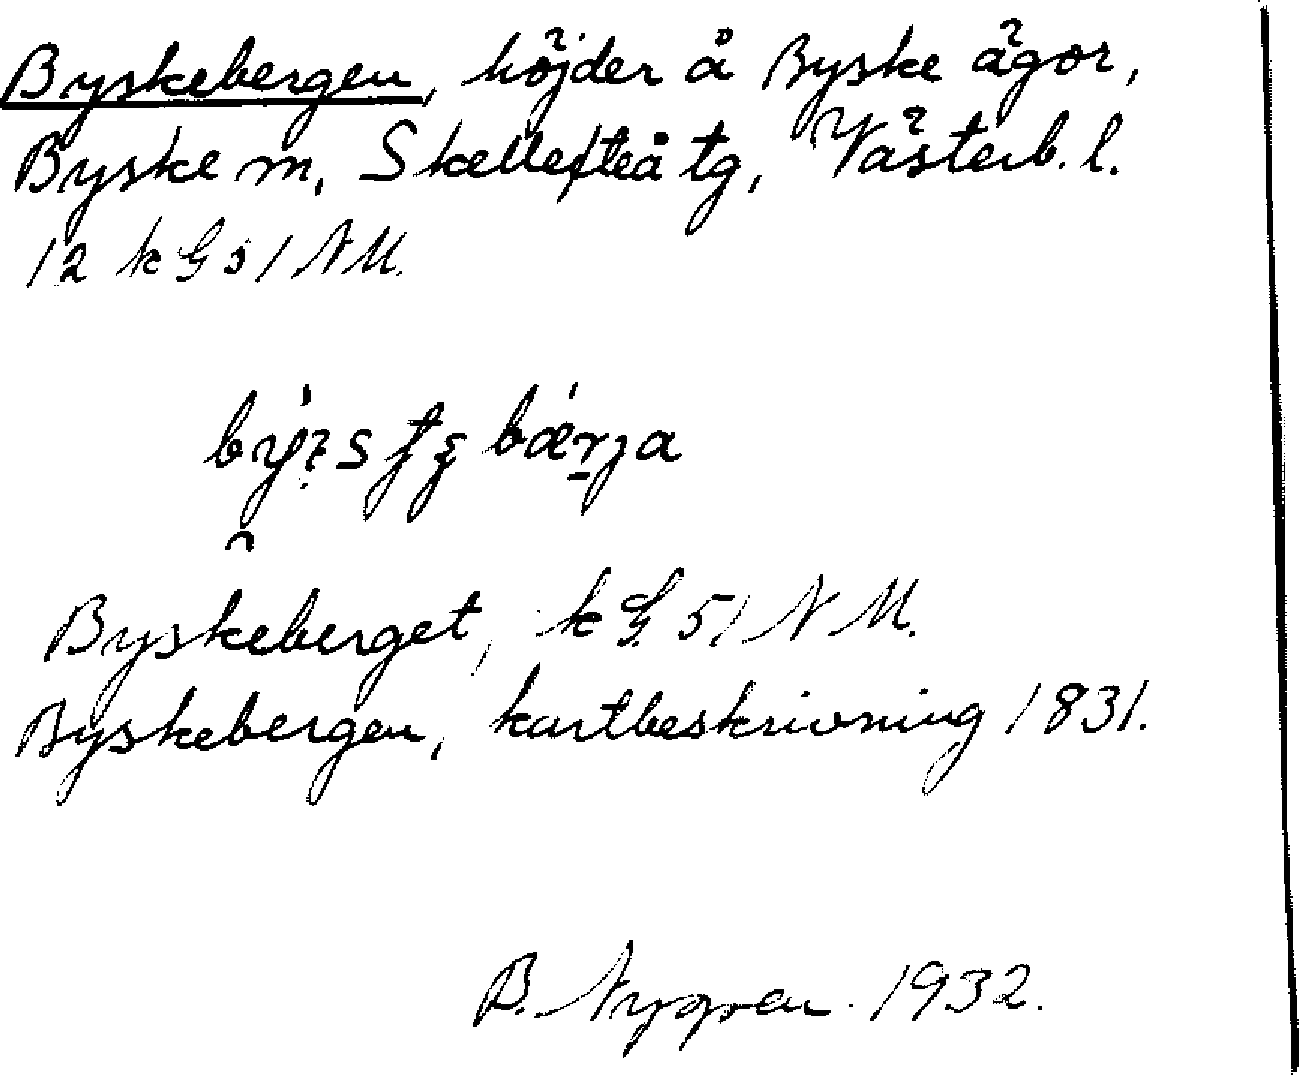 Byskebergen, höjder å Byske ägor,
Byske m, Skellefteå tg, Västerb. l.
12 k G 51 NM.
Byskeberget, k G 51 N M.
Byskebergen, kartbeskrivning 1831.
B. Nygren 1932.